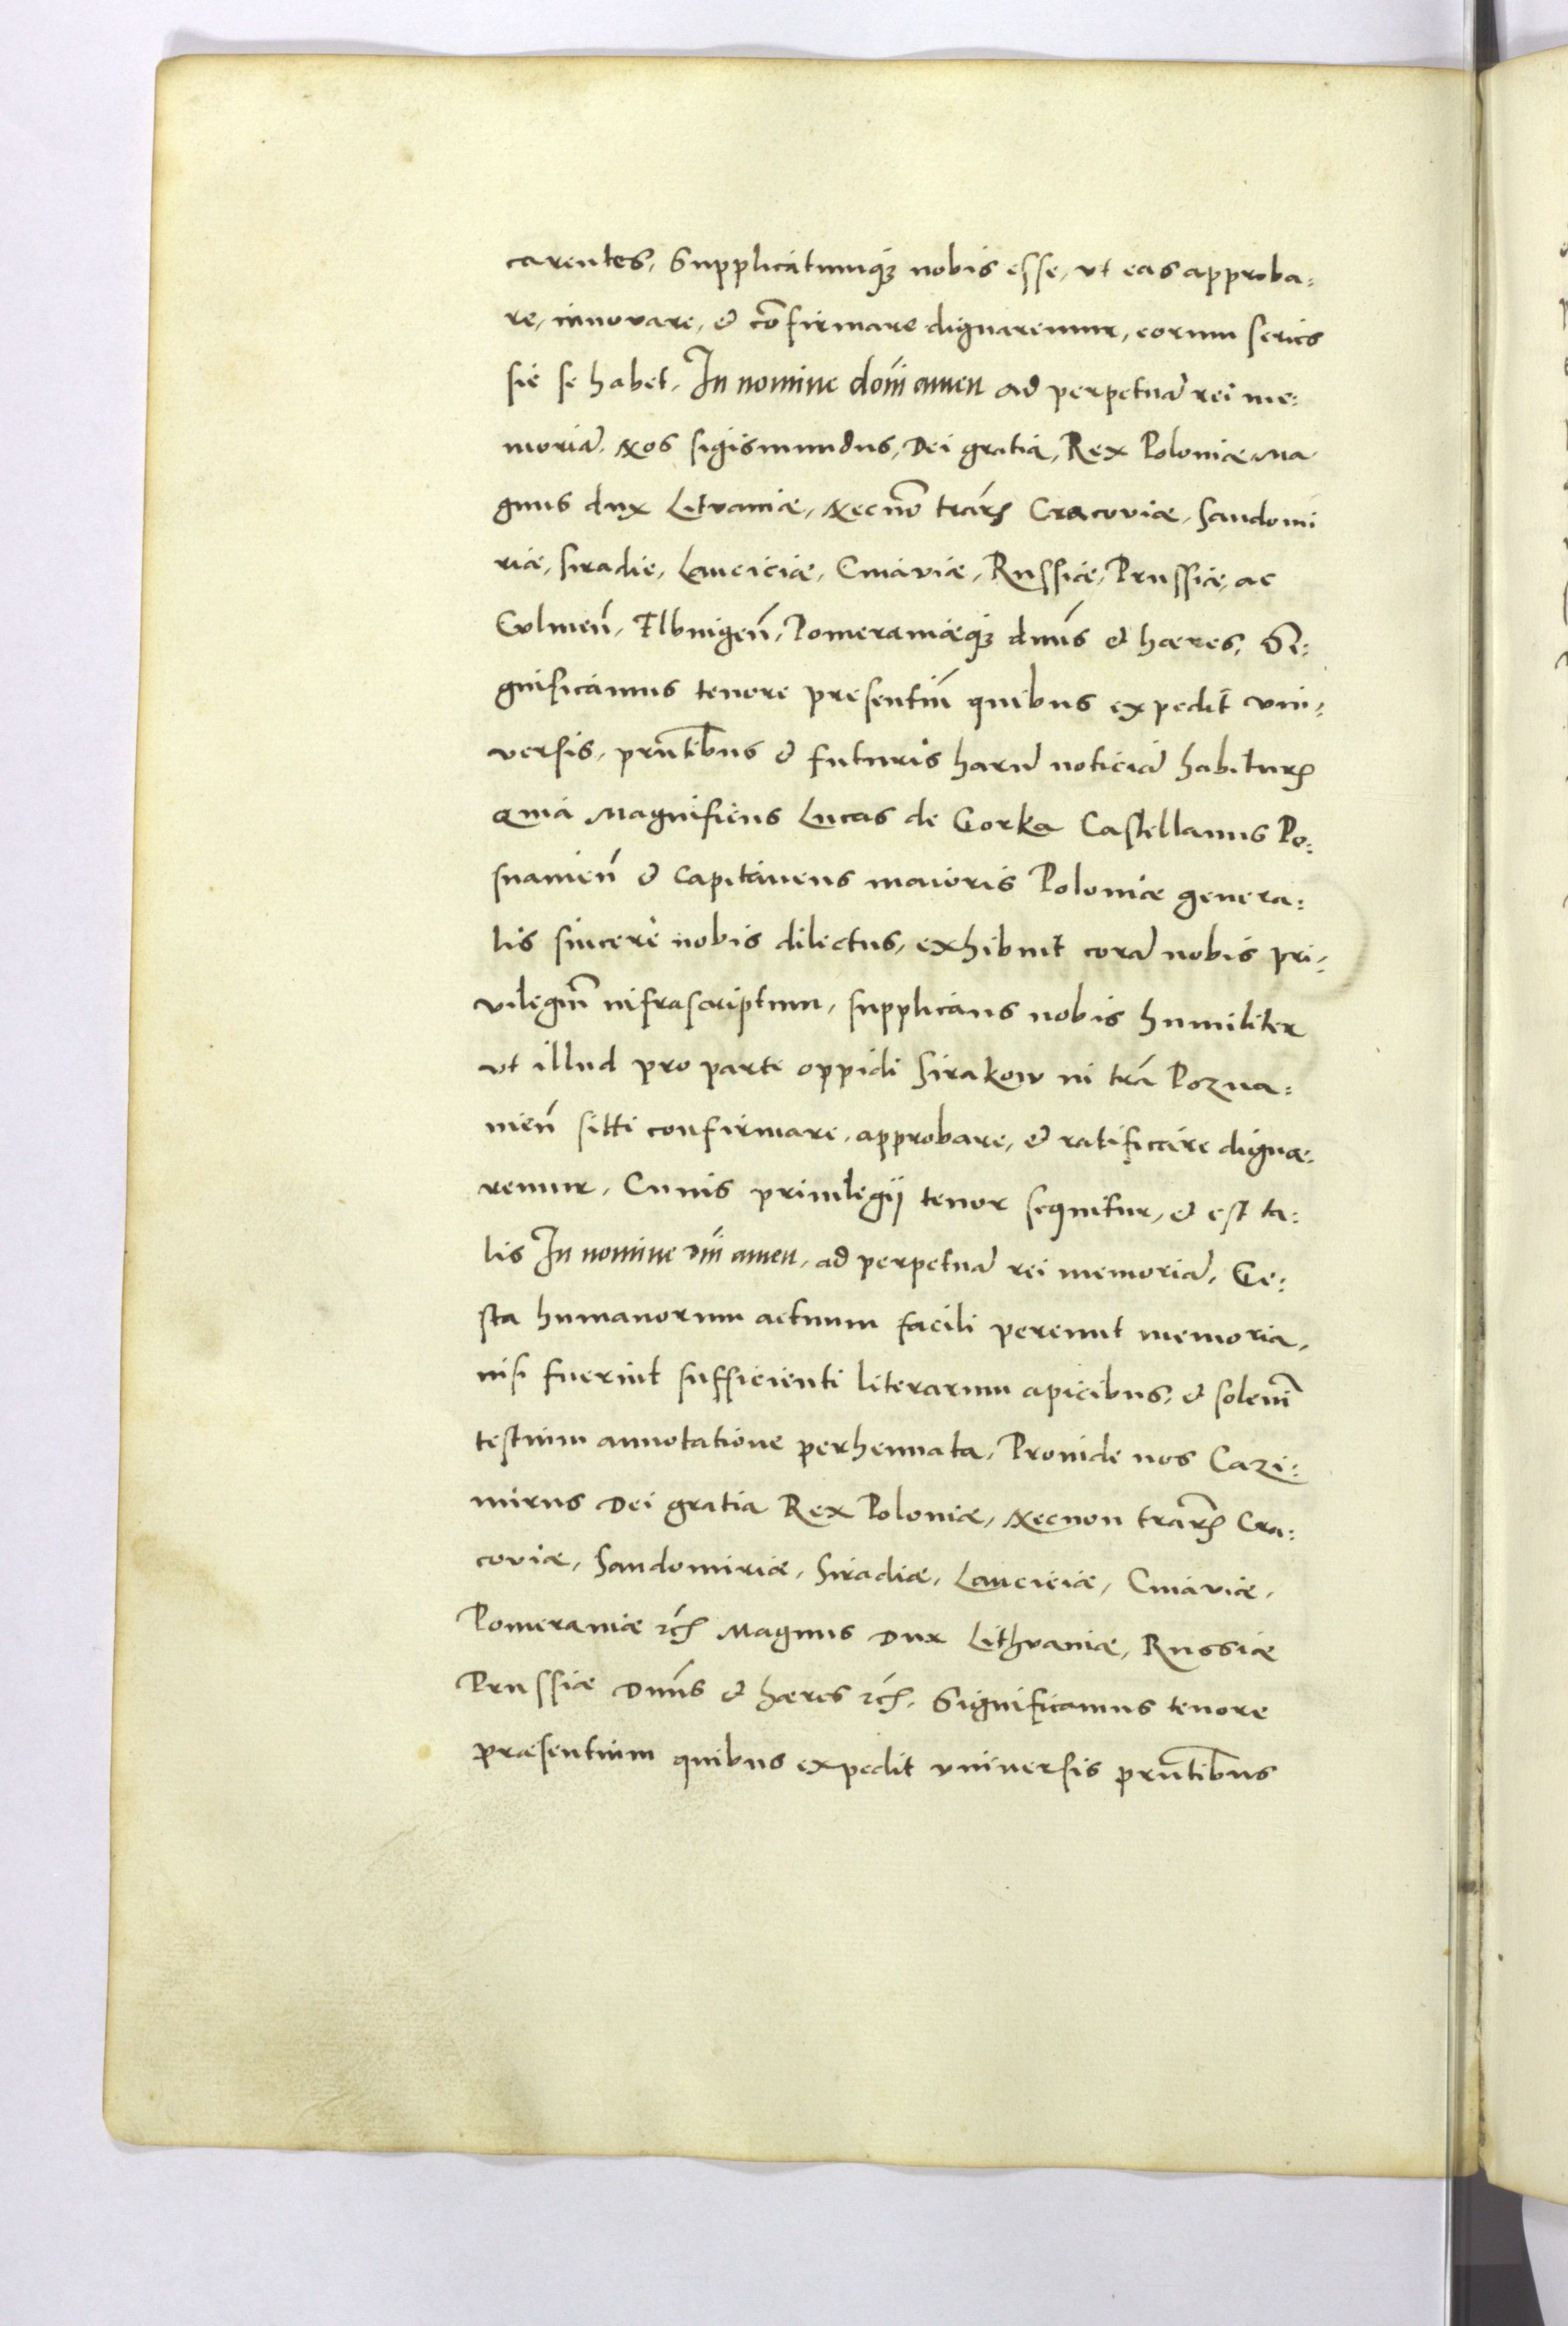 carentes, Supplicatumq₃ nobis esse, vt eas approba=
re, innovare, & cōfirmare dignaremur, eorum series
sic se habet. In nomine dom̄i amen ad perpetuā rei me=
moriā. Nos sigismundus, Dei gratia, Rex Poloniæ Ma
gnus dux Lituaniæ, Necnō trarꝝ Cracoviæ, Sandomi
riæ, Siradie, Lanciciæ, Cuiaviæ, Russiæ, Prussiæ, ac
Culmeñ, Elbingeñ, Pomeraniæq₃ dnūs & hæres, Si=
gnificamus tenore presentiū quibus expedit vni=
versis, prn̄tibus & futuris harū noticiā habiturꝝ
Quia Magnificus Lucas de Gorka Castellanus Po=
snanieñ & Capitaneus maioris Poloniæ genera=
lis sincerè nobis dilectus, exhibuit corā nobis pri=
vilegiū infrascriptum, supplicans nobis humiliter
vt illud pro parte oppidi Sirakow in trā Pozna=
nieñ sitti confirmare, approbare, & ratificare digna=
remur. Cuius priuilegij tenor sequitur, & est ta=
lis In nomine Dn̄i amen, ad perpetuā rei memoriā, Ge=
sta humanorum actuum facili pereunt memoria,
nisi fuerint sufficienti literarum apicibus, & solenī
testium annotatione perhennata, Proinde nos Cazi=
mirus Dei gratia Rex Poloniæ, Necnon trarꝝ Cra=
coviæ, Sandomiriæ, Siradiæ, Lanciciæ, Cuiaviæ,
Pomeraniæ ꝛcꝭ Magnus Dux Lithvaniæ, Russiæ
Prussiæ Dnūs & hæres ꝛcꝭ. Significamus tenore
præsentium quibus expedit vniversis prn̄tibus